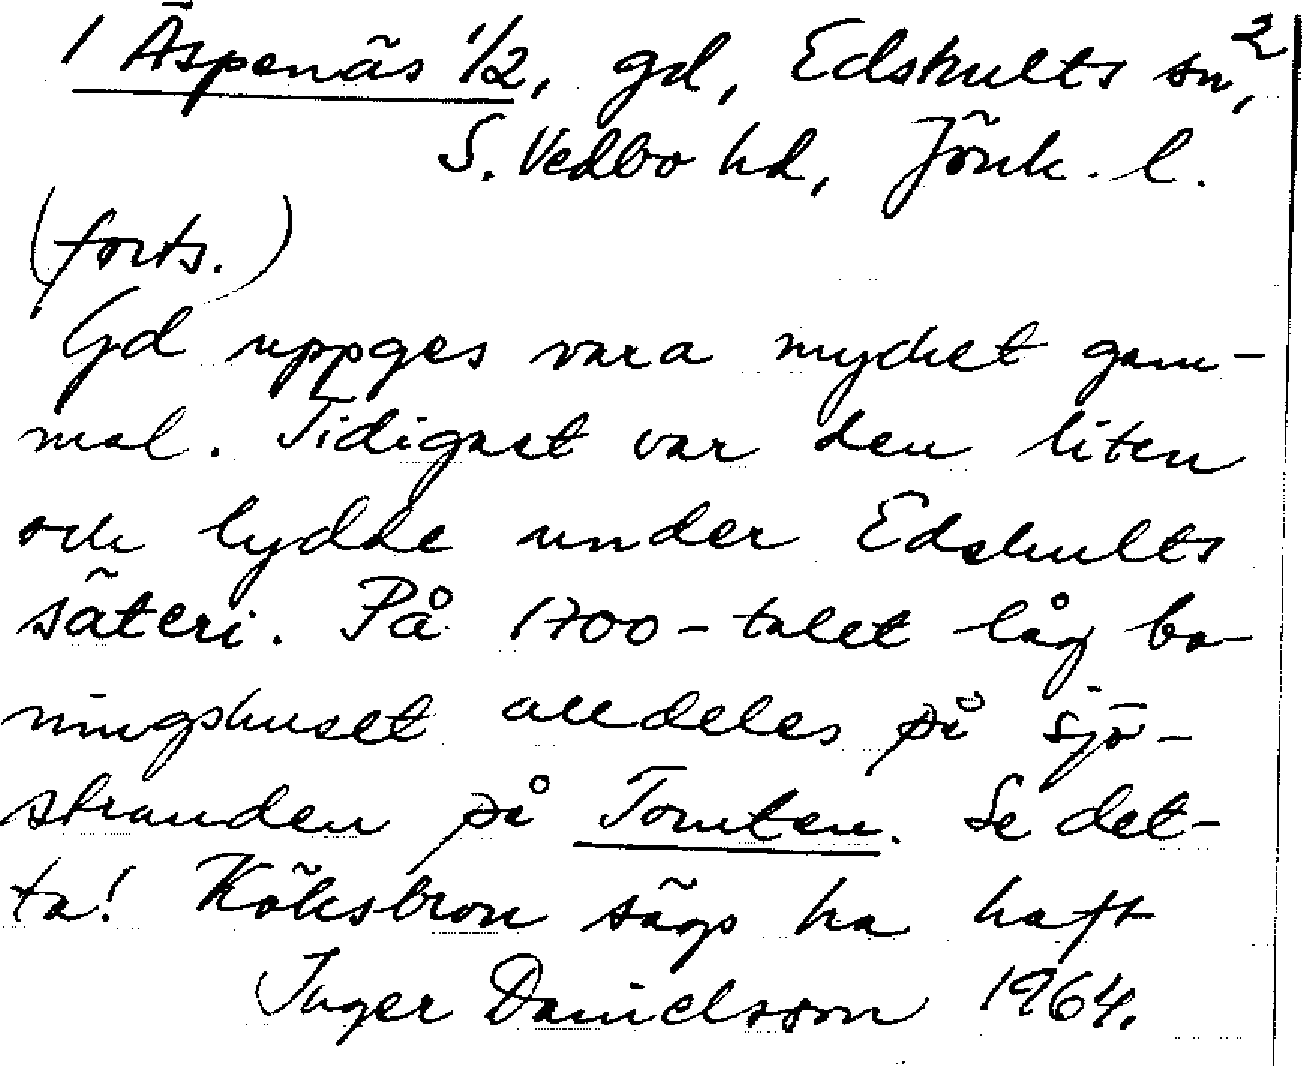 1 Äspenäs 1/2, gd, Edshults sn, 2
S. Vedbo hd, Jönk. l.
(forts.)
Gd uppges vara mycket gam-
mal. Tidigast var den liten
och lydde under Edshults
säteri. På 1700-talet låg bo-
ningshuset alldeles på sjö-
stranden på Tomten. Se det-
ta! Köksbron sägs ha haft
Inger Danielsson 1964.